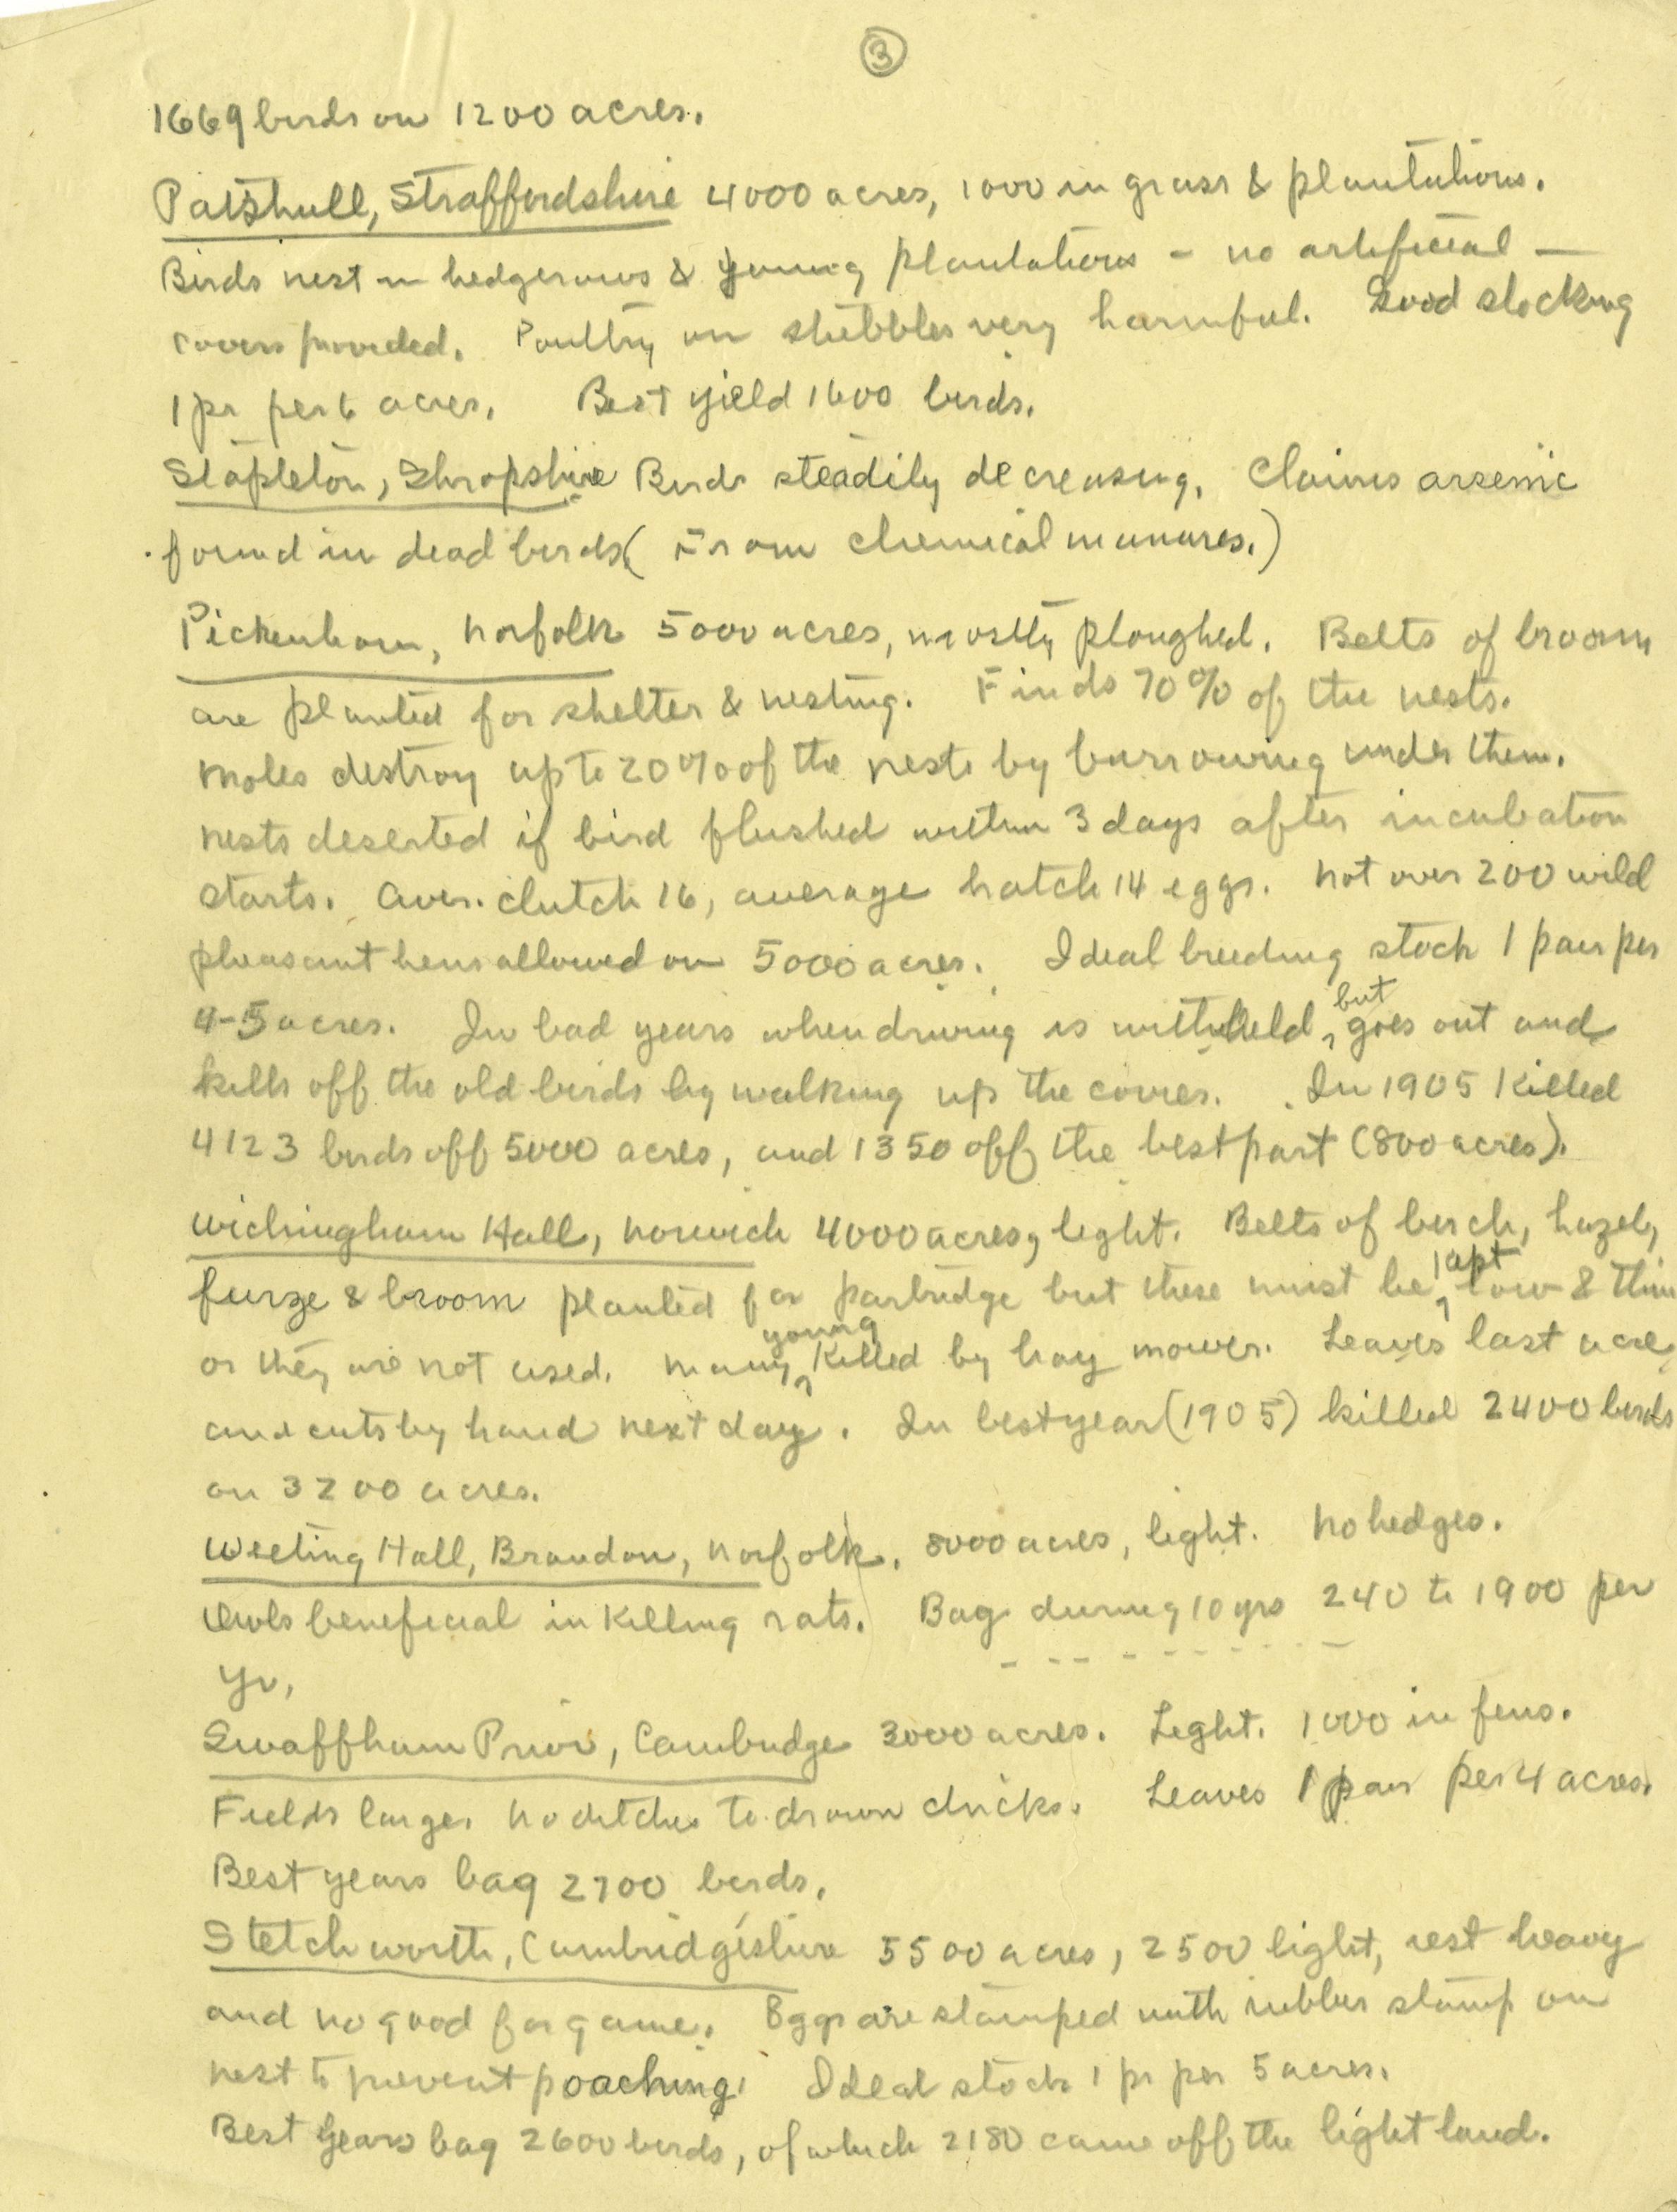 ③
1669 birds on 1200 acres.
Patshull, Straffordshire 4000 acres, 1000 in grass & plantations.
Birds nest in hedgerows & young plantations - no artificial -
covers provided. Poultry on stubbles very harmful. Good stocking
1 pr per 6 acres. Best yield 1600 birds.
Stapleton, Shropshire Birds steadily decreasing. Claims arsenic
found in dead birds (From chemical manures.)
Pickenham, Norfolk 5000 acres, mostly ploughed. Belts of broom
are planted for shelter & nesting. Finds 70% of the nests.
Moles destroy up to 20% of the nests by burrowing under them.
Nests deserted if bird flushed within 3 days after incubation
starts. Aver. clutch 16, average hatch 14 eggs. Not over 200 wild
pheasant hens allowed on 5000 acres. Ideal breeding stock 1 pair per
4-5 acres. In bad years when driving is withheld, but goes out and
kills off the old birds by walking up the covies. In 1905 killed
4123 birds off 5000 acres, and 1350 off the best part (800 acres).
Wichingham Hall, Norwich 4000 acres, light. Belts of birch, hazel,
furze & broom planted for partridge but these must be kept low & thin
or they are not used. Many young killed by hay mower. Leaves last acre
and cuts by hand next day. In best year (1905) killed 2400 birds
on 3200 acres.
Weeting Hall, Brandon, Norfolk. 8000 acres, light. No hedges.
Owls beneficial in killing rats. Bag during 10 yrs 240 to 1900 per
yr.
Swaffham Prior, Cambridge 3000 acres. Light. 1000 in fens.
Fields large. No ditches to drown chicks. Leaves 1 pair per 4 acres.
Best years bag 2700 birds.
Stetchworth, Cambridgeshire 5500 acres, 2500 light, rest heavy
and no good for game. Eggs are stamped with rubber stamp on
nest to prevent poaching. Ideal stock 1 pr per 5 acres.
Best years bag 2600 birds, of which 2180 came off the light land.